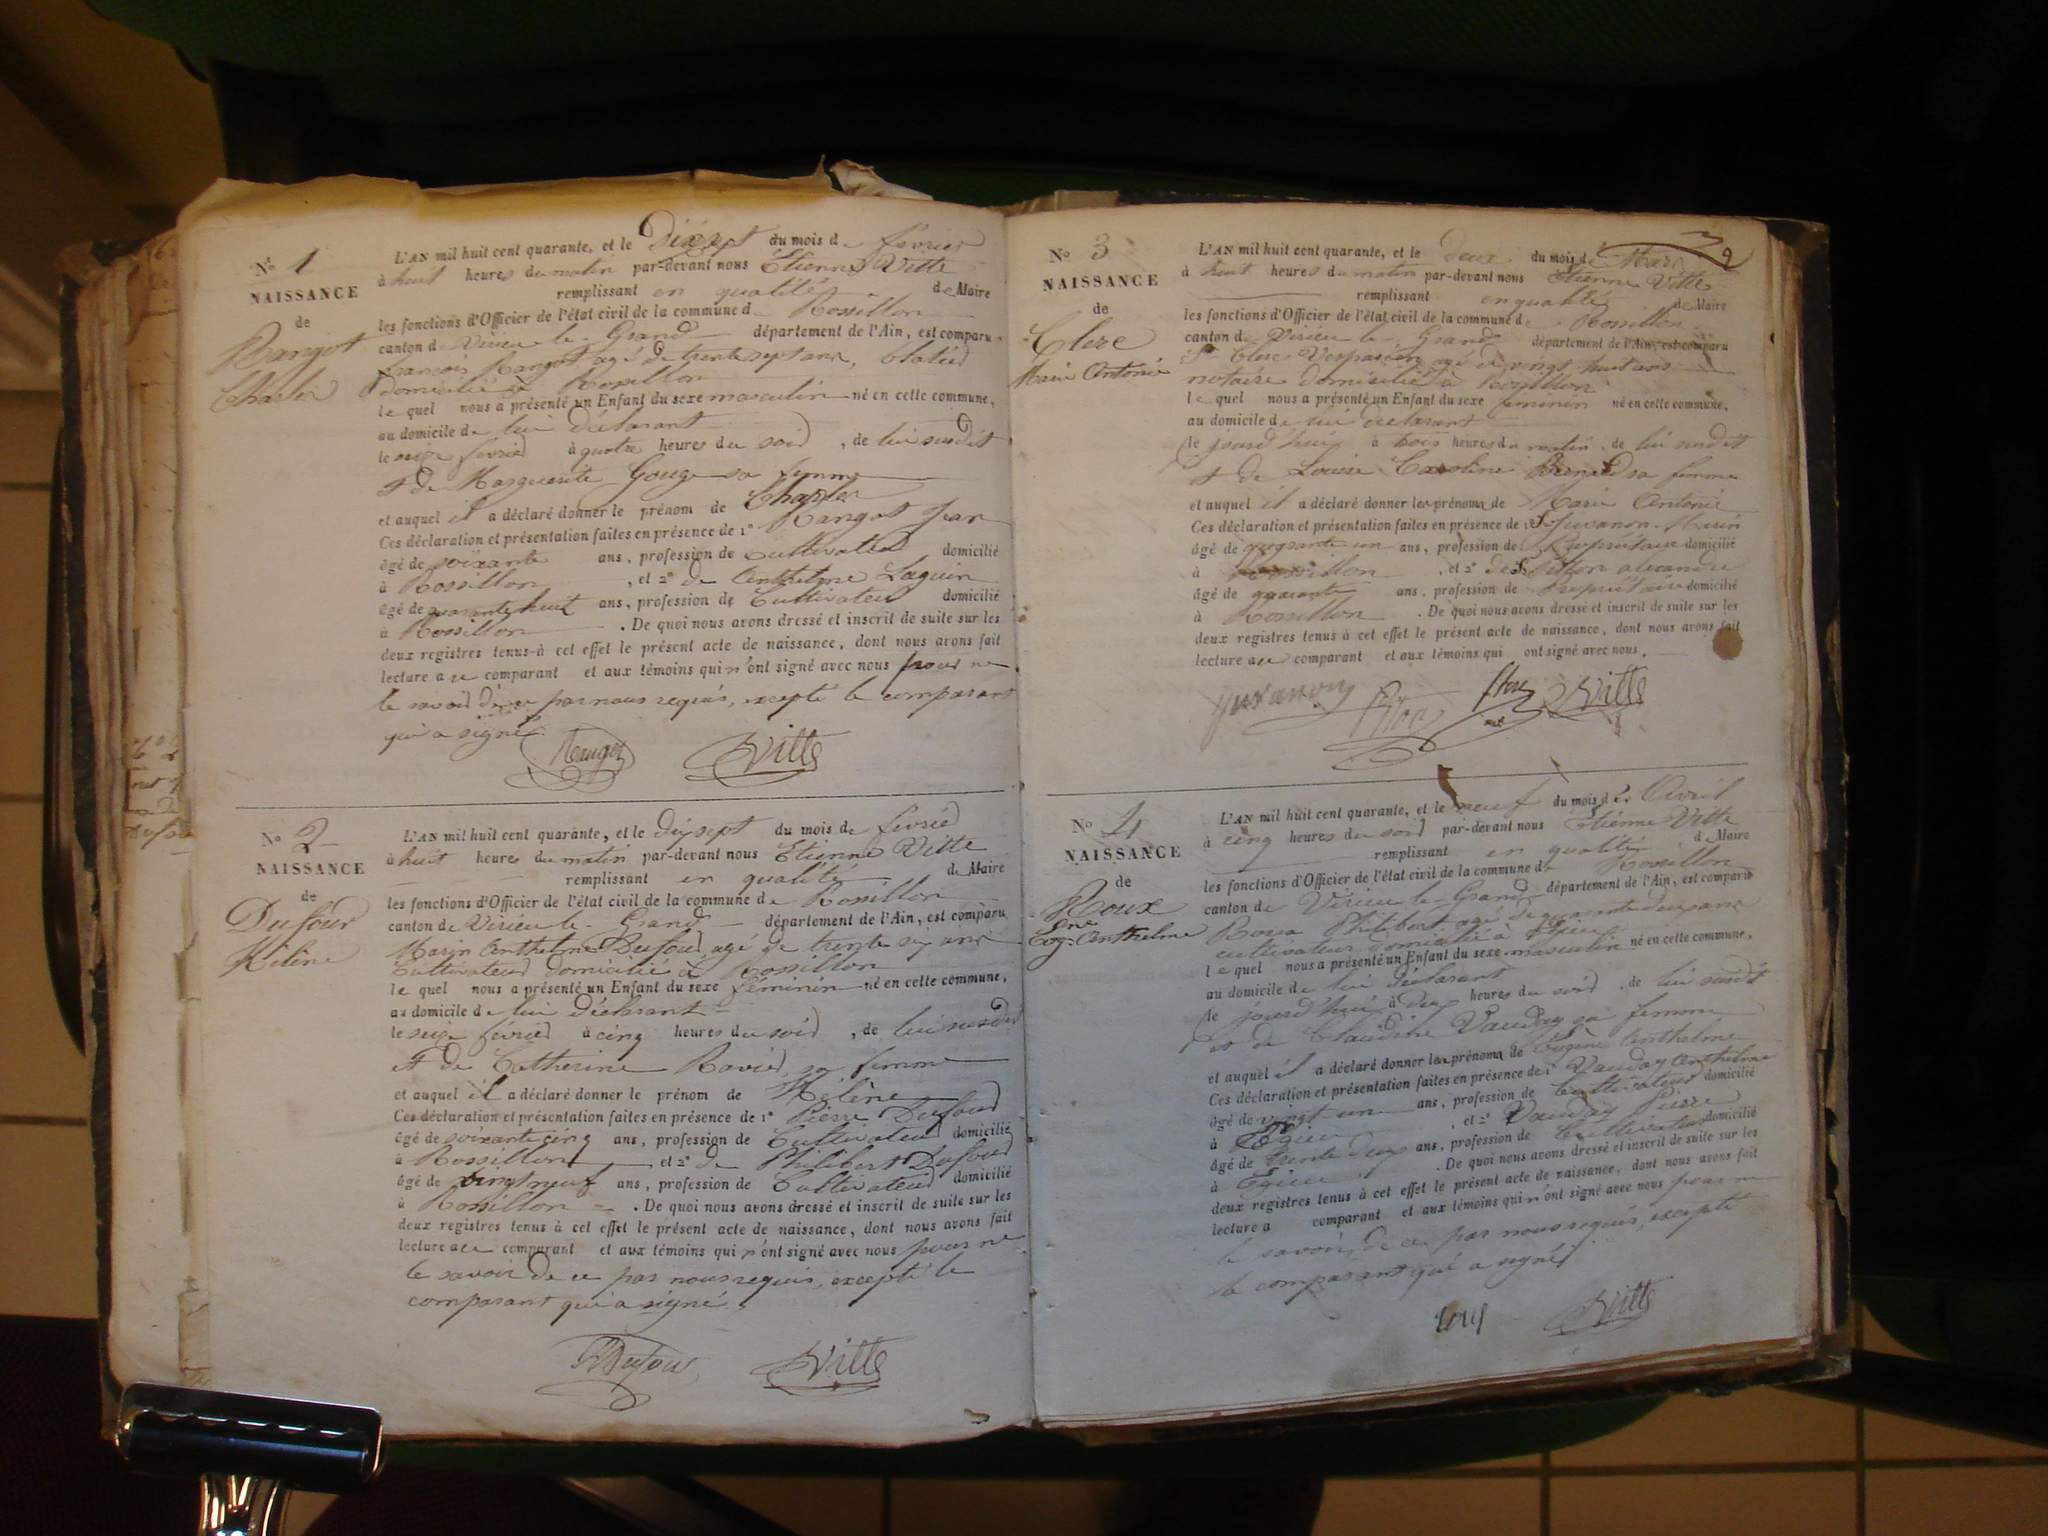 N° 1
NAISSANCE
de
Rangot
Charles
L'AN mil huit cent quarante, et le dix sept du mois de février
à huit heures du matin par-devant nous Etienne Vitte
remplissant en qualité de Maire
les fonctions d'Officier de l'état civil de la commune d Rossillon
canton d Virieu le Grand département de l'Ain, est comparu
françois Rangot agé de trente sept ans,
domicilié à Rossillon
lequel nous a présenté un Enfant du sexe masculin né en cette commune,
au domicile de lui déclarant
le seize février à quatre heures du soir, de lui susdit
et de Marguerite Gouge sa femme
et auquel il a déclaré donner le prénom de Charles
Ces déclaration et présentation faites en présence de 1° Rangot Jean
âgé de soixante ans, profession de Cultivateur domicilié
à Rossillon, et 2° de Anthelme Laguin
âgé de quarante huit ans, profession de Cultivateur domicilié
à Rossillon. De quoi nous avons dressé et inscrit de suite sur les
deux registres tenus à cet effet le présent acte de naissance, dont nous avons fait
lecture a ce comparant et aux témoins qui n'ont signé avec nous pour ne
le savoir de ce par nous requis, excepté le comparant
qui a signé.
Rangot Vitte
N° 2
NAISSANCE
de
Dufour
Hélène
L'AN mil huit cent quarante, et le dix sept du mois de février
à huit heures du matin par-devant nous Etienne Vitte
remplissant en qualité de Maire
les fonctions d'Officier de l'état civil de la commune de Rossillon
canton de Virieu le Grand département de l'Ain, est comparu
Marin Anthelme Dufour, agé de trente six ans
Cultivateur domicilié à Rossillon
lequel nous a présenté un Enfant du sexe féminin né en cette commune,
au domicile de lui déclarant
le seize février à cinq heures du soir, de lui susdit
et de Catherine Ravier, sa femme
et auquel il a déclaré donner le prénom de Hélène
Ces déclaration et présentation faites en présence de 1° Pierre Dufour
âgé de soixante cinq ans, profession de Cultivateur domicilié
à Rossillon, et 2° de Philibert Dufour
âgé de vingt neuf ans, profession de Cultivateur domicilié
à Rossillon. De quoi nous avons dressé et inscrit de suite sur les
deux registres tenus à cet effet le présent acte de naissance, dont nous avons fait
lecture a ce comparant et aux témoins qui n'ont signé avec nous pour ne
le savoir de ce par nous requis, excepté le
comparant qui a signé.
Dufour Vitte
N° 3
NAISSANCE
de
Clerc
Marie Antonie
L'AN mil huit cent quarante, et le deux du mois de Mars
à huit heures du matin par-devant nous Etienne Vitte
remplissant en qualité de Maire
les fonctions d'Officier de l'état civil de la commune de Rossillon
canton de Virieu le Grand département de l'Ain, est comparu
Sr Clerc Vespasien agé de vingt huit ans
notaire domicilié à Rossillon
lequel nous a présenté un Enfant du sexe féminin né en cette commune,
au domicile de lui déclarant
le jourd'hui à trois heures du matin, de lui susdit
et de Louise Caroline Bernard sa femme
et auquel il a déclaré donner les prénoms de Marie Antonie
Ces déclaration et présentation faites en présence de 1° Sr Juvanon Marin
âgé de quarante un ans, profession de Propriétaire domicilié
à Rossillon, et 2° de Sr Pillon alexandre
âgé de quarante ans, profession de Propriétaire domicilié
à Rossillon. De quoi nous avons dressé et inscrit de suite sur les
deux registres tenus à cet effet le présent acte de naissance, dont nous avons fait
lecture a ce comparant et aux témoins qui ont signé avec nous.
Juvanon Clerc Vitte
N° 4
NAISSANCE
de
Roux
Eugne Anthelme
L'AN mil huit cent quarante, et le neuf du mois d' Avril
à cinq heures du soir par-devant nous Etienne Vitte
remplissant en qualité de Maire
les fonctions d'Officier de l'état civil de la commune de Rossillon
canton de Virieu le Grand département de l'Ain, est comparu
Roux Philibert agé de quarante deux ans
cultivateur domicilié à Egieu
lequel nous a présenté un Enfant du sexe masculin né en cette commune,
au domicile de lui déclarant
le jourd'hui à deux heures du soir, de lui susdit
et de Claudine Vauday sa femme
et auquel il a déclaré donner les prénoms de Eugène Anthelme
Ces déclaration et présentation faites en présence de 1° Vauday Anthelme
âgé de vingt un ans, profession de Cultivateur domicilié
à Egieu, et 2° Vauday Pierre
âgé de trente deux ans, profession de Cultivateur domicilié
à Egieu. De quoi nous avons dressé et inscrit de suite sur les
deux registres tenus à cet effet le présent acte de naissance, dont nous avons fait
lecture a comparant et aux témoins qui n'ont signé avec nous pour ne
le savoir, de ce par nous requis, excepté
le comparant qui a signé
Vitte